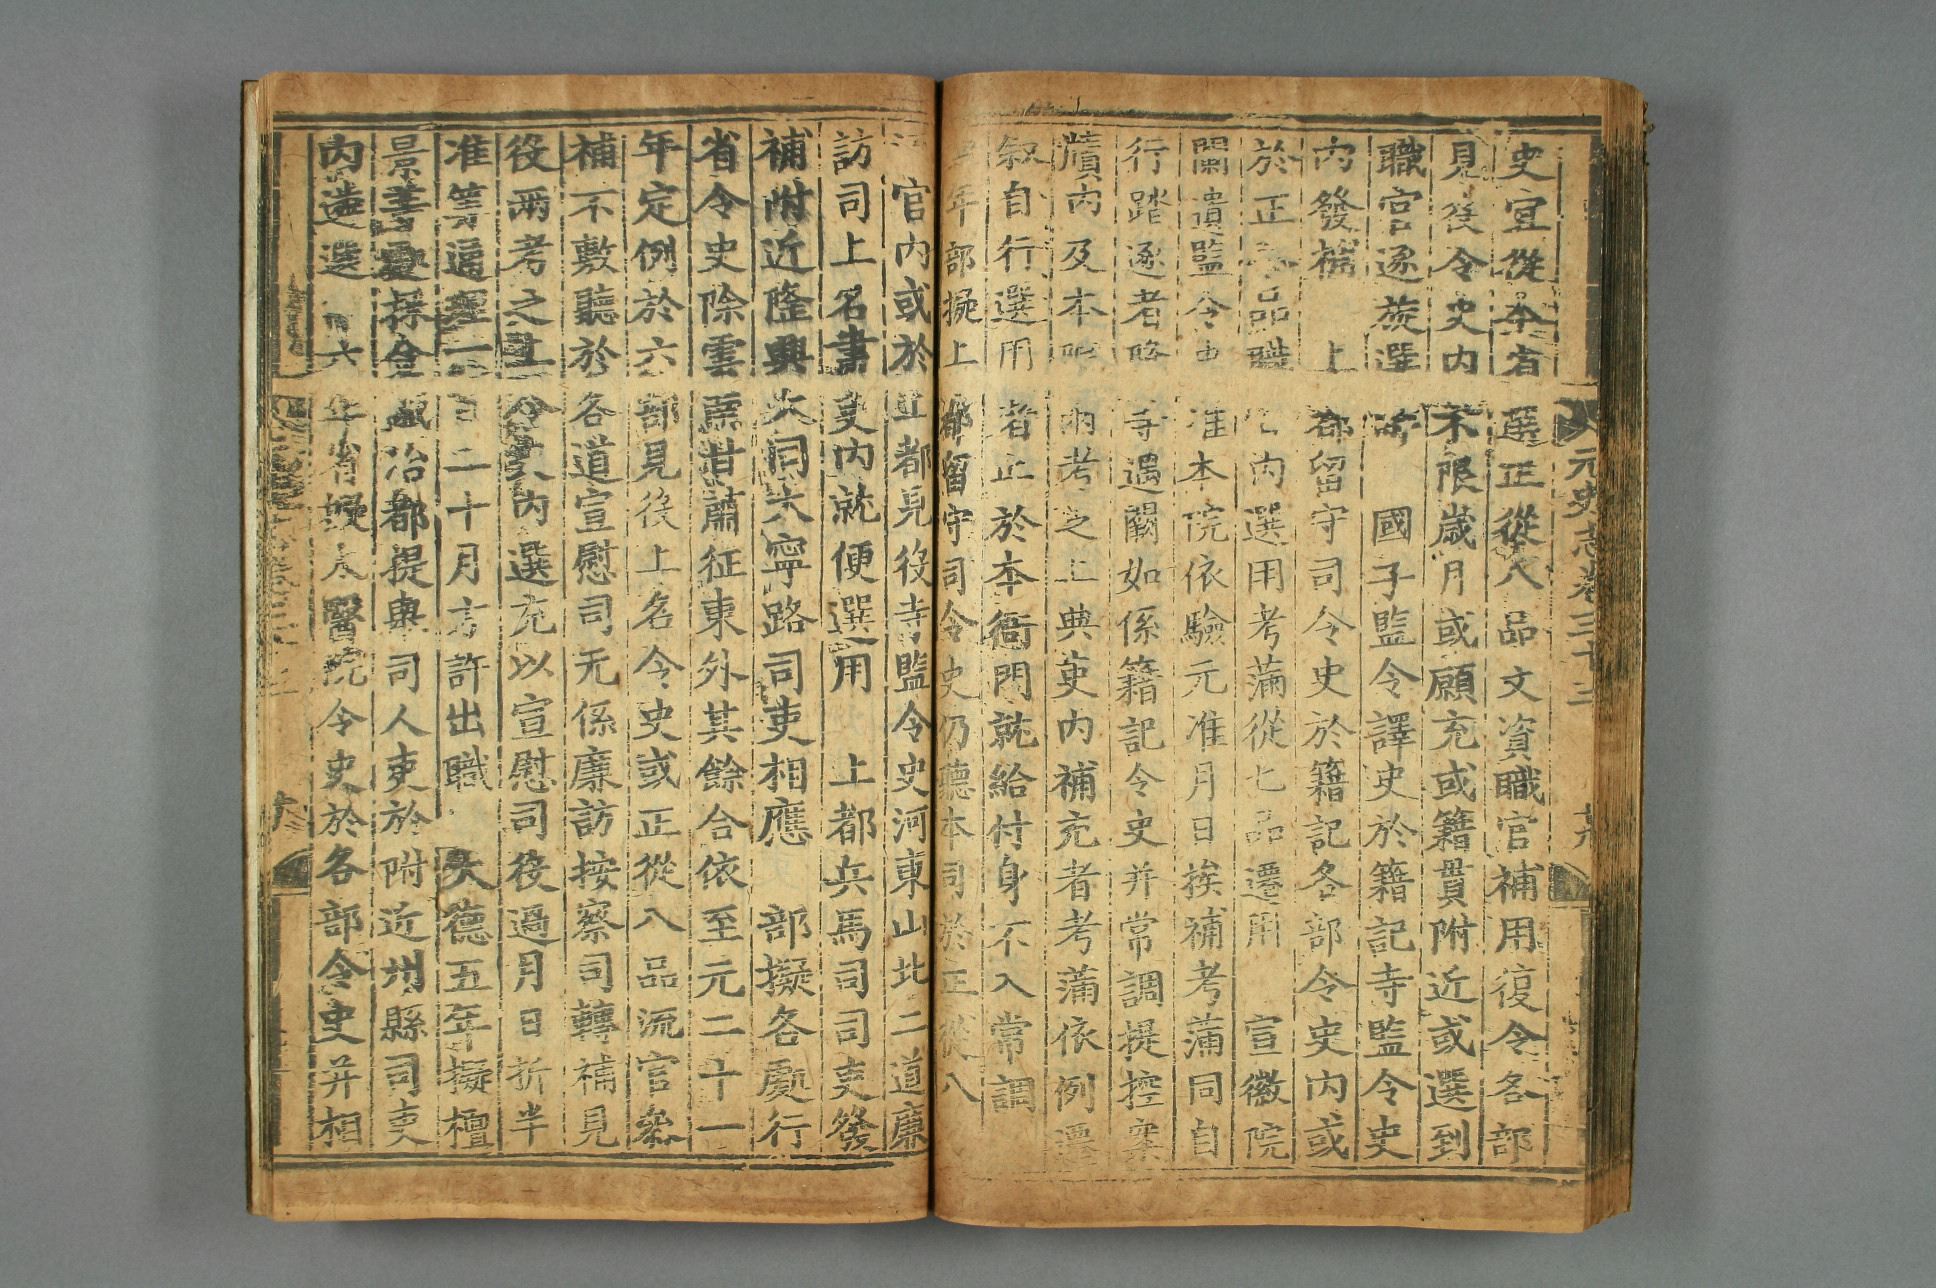 元史志卷三十三
史宣從本省選正從八品文資職官補用復令各部
見役令史内不限歳月或願充或籍貫附近或選到
職官逐旋選 國子監令譯史於籍記寺監令史
内發補 上都留守司令史於籍記各部令史内或
於正 品職 内選用考滿從七品遷用 宣徽院
闌遺監令史准本院依驗元准月日挨補考滿同自
行踏逐者 寺遇闕如係籍記令史并常調提控案
牘内及本 兩考之上典吏内補充者考滿依例遷
叙自行選用者止於本衙門就給付身不入常調
年部擬上都留守司令史仍聽本司於正從八
官内或於上都見役寺監令史河東山北二道廉
訪司上名書吏内就便選用 上都兵馬司司吏發
補附近隆興大同大寧路司吏相應 部擬各處行
省令史除雲南甘肅征東外其餘合依至元二十一
年定例於六部見役上名令史或正從八品流官叅
補不敷聽於各道宣慰司元係廉訪按察司轉補見
役兩考之上令史内選充以宣慰司役過月日折半
准等 一 二十月方許出職 大德五年擬檀
景 採金鐵冶都提舉司人吏於附近州縣司吏
内遴選 六年省擬太醫院令史於各部令史并相